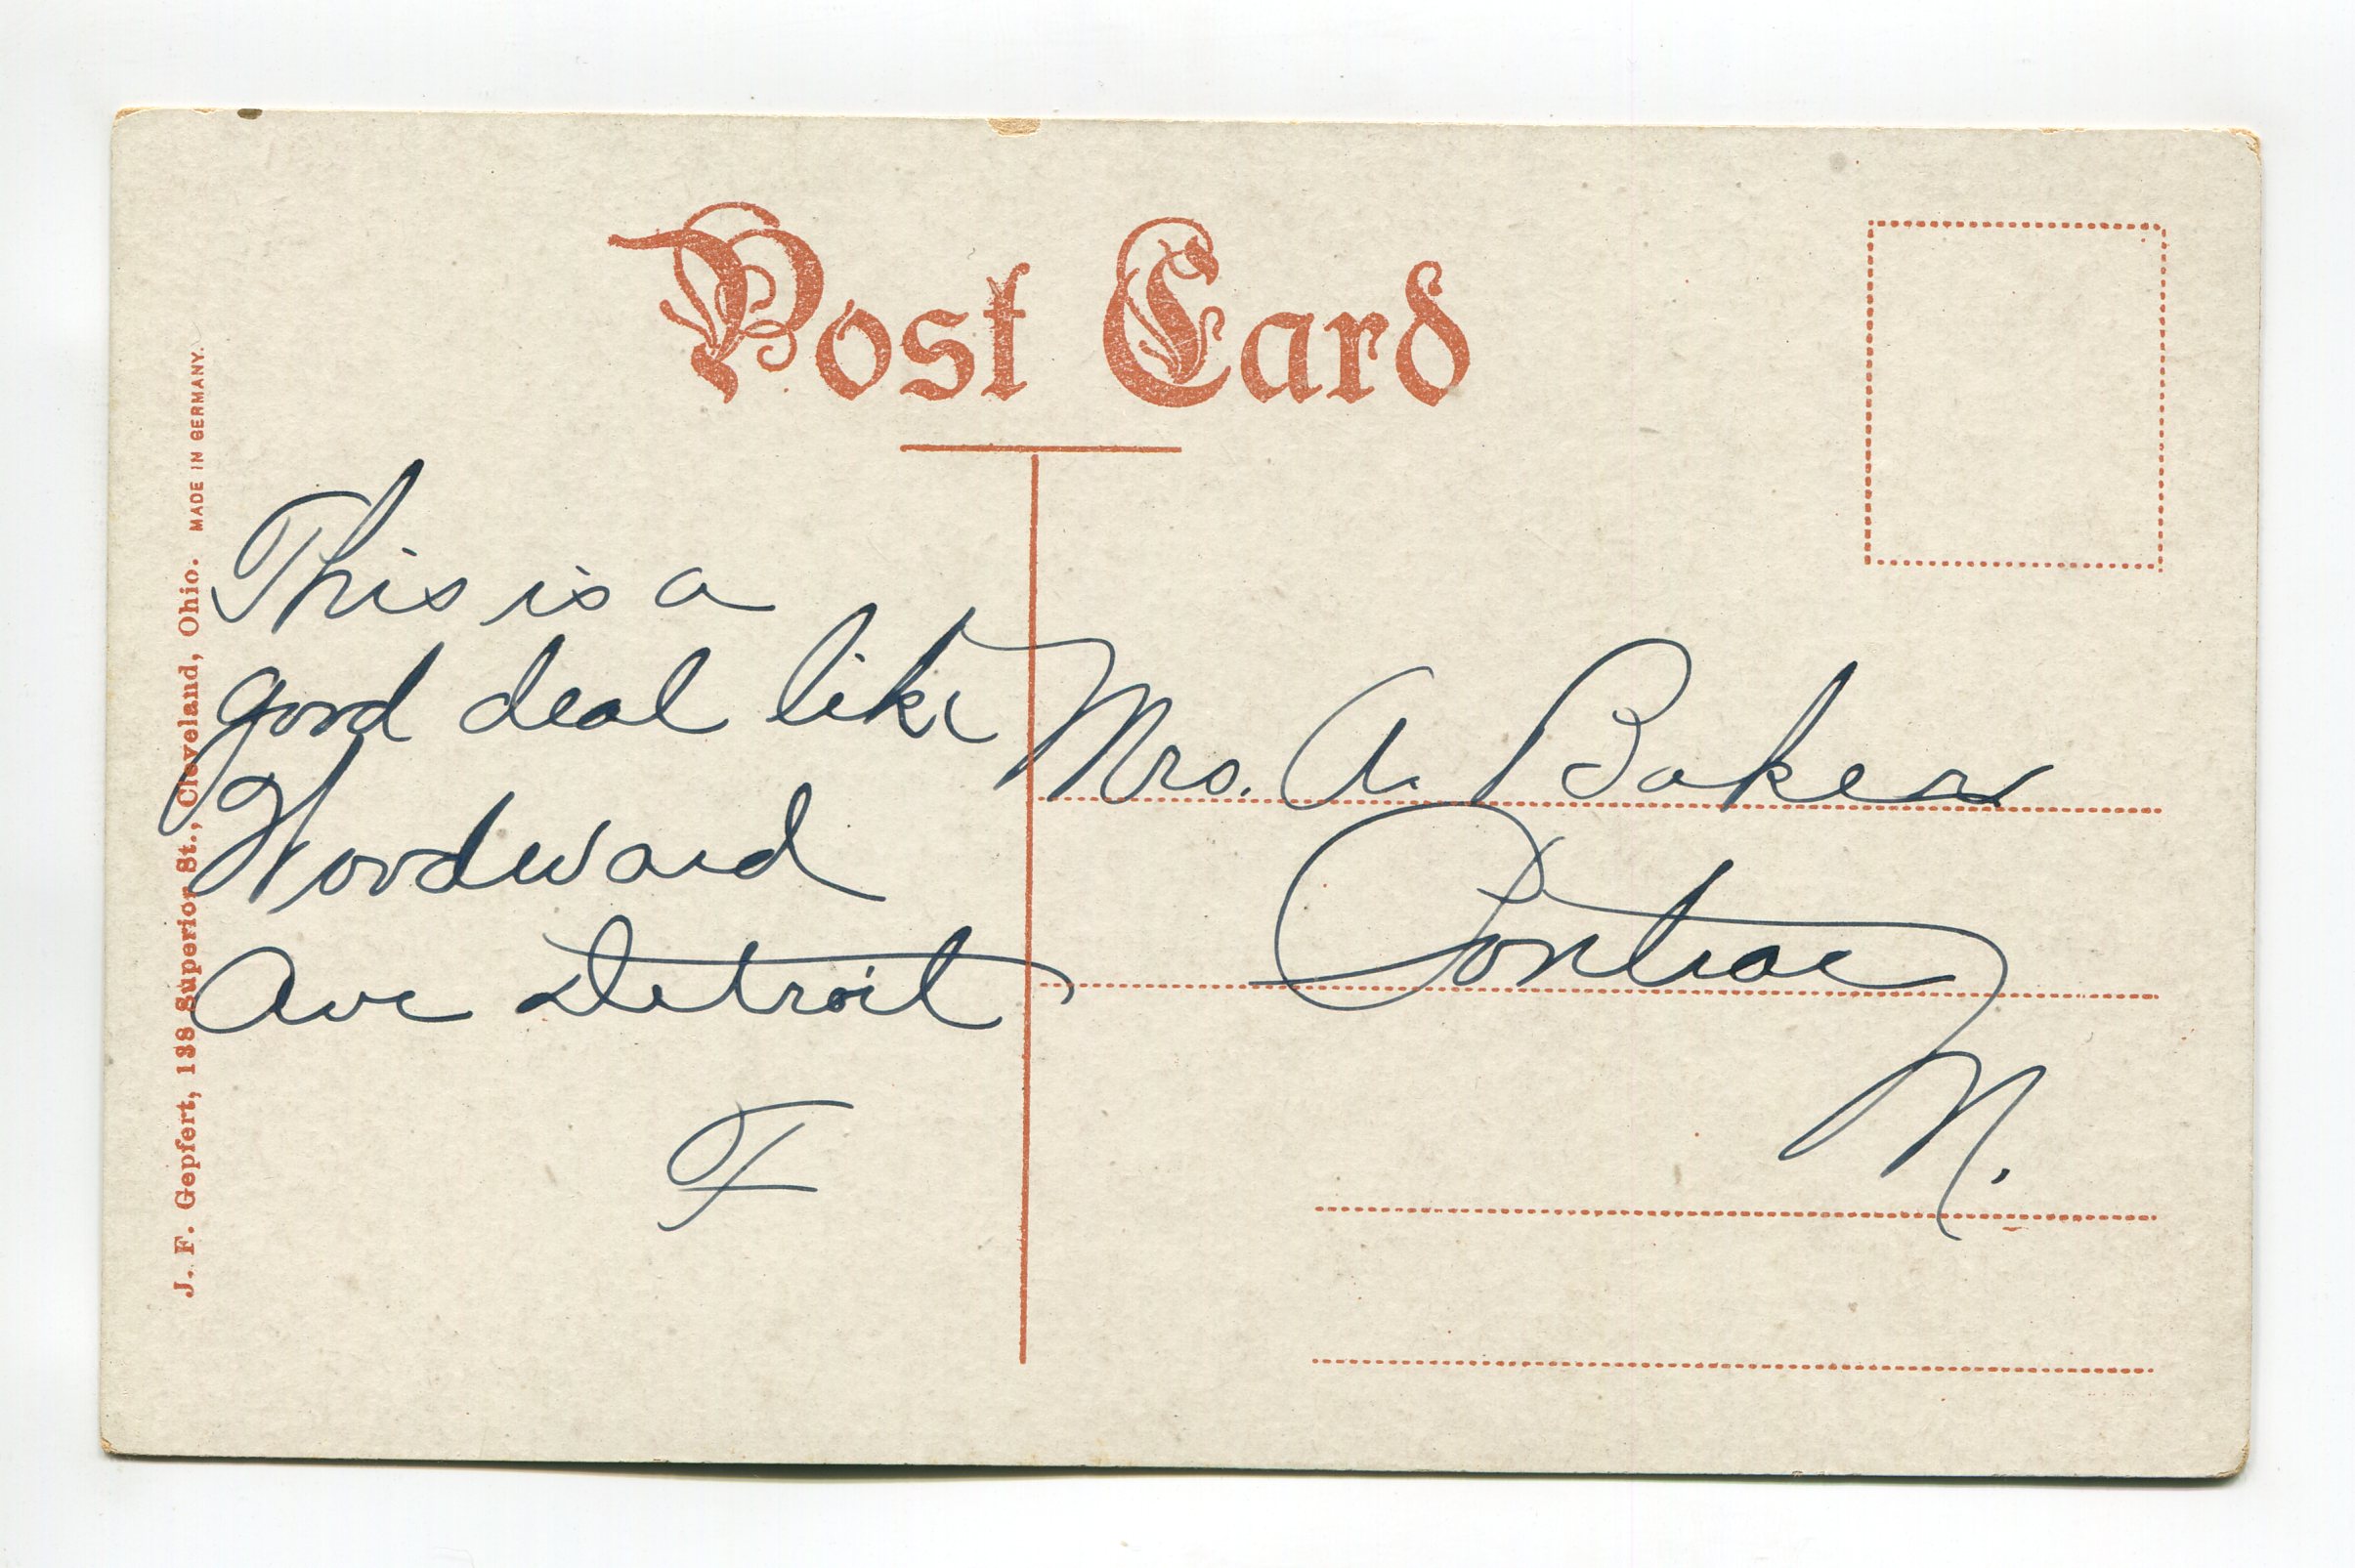 Post Card
J. F. Gepfert, 138 Superior St., Cleveland, Ohio. MADE IN GERMANY.
This is a
good deal like
Woodward
Ave Detroit
F
Mrs. A. Baker
Pontiac
M.